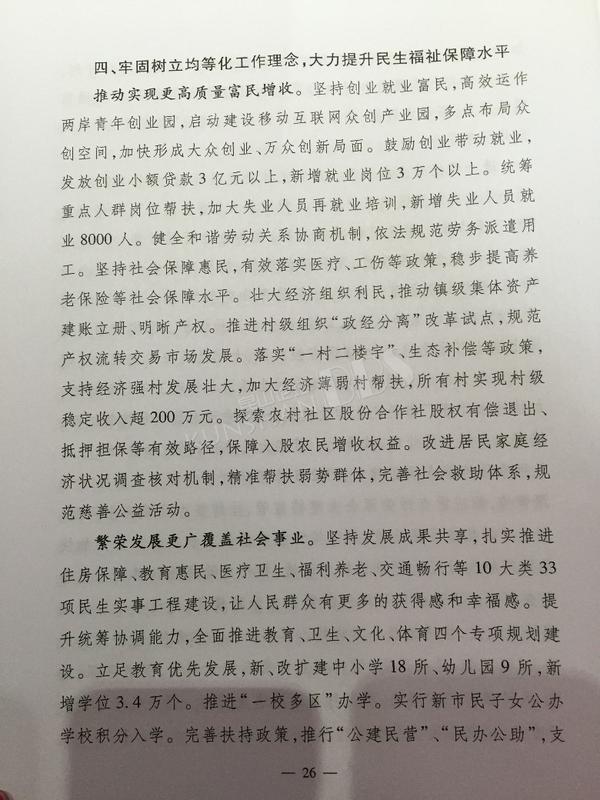 四、牢固树立均等化工作理念,大力提升民生福祉保障水平
推动实现更高质量富民增收。坚持创业就业富民,高效运作
两岸青年创业园,启动建设移动互联网众创产业园,多点布局众
创空间,加快形成大众创业、万众创新局面。鼓励创业带动就业,
发放创业小额贷款3亿元以上,新增就业岗位3万个以上。统筹
重点人群岗位帮扶,加大失业人员再就业培训,新增失业人员就
业8000人。健全和谐劳动关系协商机制,依法规范劳务派遣用
工。坚持社会保障惠民,有效落实医疗、工伤等政策,稳步提高养
老保险等社会保障水平。壮大经济组织利民,推动镇级集体资产
建账立册、明晰产权。推进村级组织“政经分离”改革试点,规范
产权流转交易市场发展。落实“一村二楼宇”、生态补偿等政策,
支持经济强村发展壮大,加大经济薄弱村帮扶,所有村实现村级
稳定收入超200万元。探索农村社区股份合作社股权有偿退出、
抵押担保等有效路径,保障入股农民增收权益。改进居民家庭经
济状况调查核对机制,精准帮扶弱势群体,完善社会救助体系,规
范慈善公益活动。
繁荣发展更广覆盖社会事业。坚持发展成果共享,扎实推进
住房保障、教育惠民、医疗卫生、福利养老、交通畅行等10大类33
项民生实事工程建设,让人民群众有更多的获得感和幸福感。提
升统筹协调能力,全面推进教育、卫生、文化、体育四个专项规划建
设。立足教育优先发展,新、改扩建中小学18所、幼儿园9所,新
增学位3.4万个。推进“一校多区”办学。实行新市民子女公办
学校积分入学。完善扶持政策,推行“公建民营”、“民办公助”,支
— 26 —